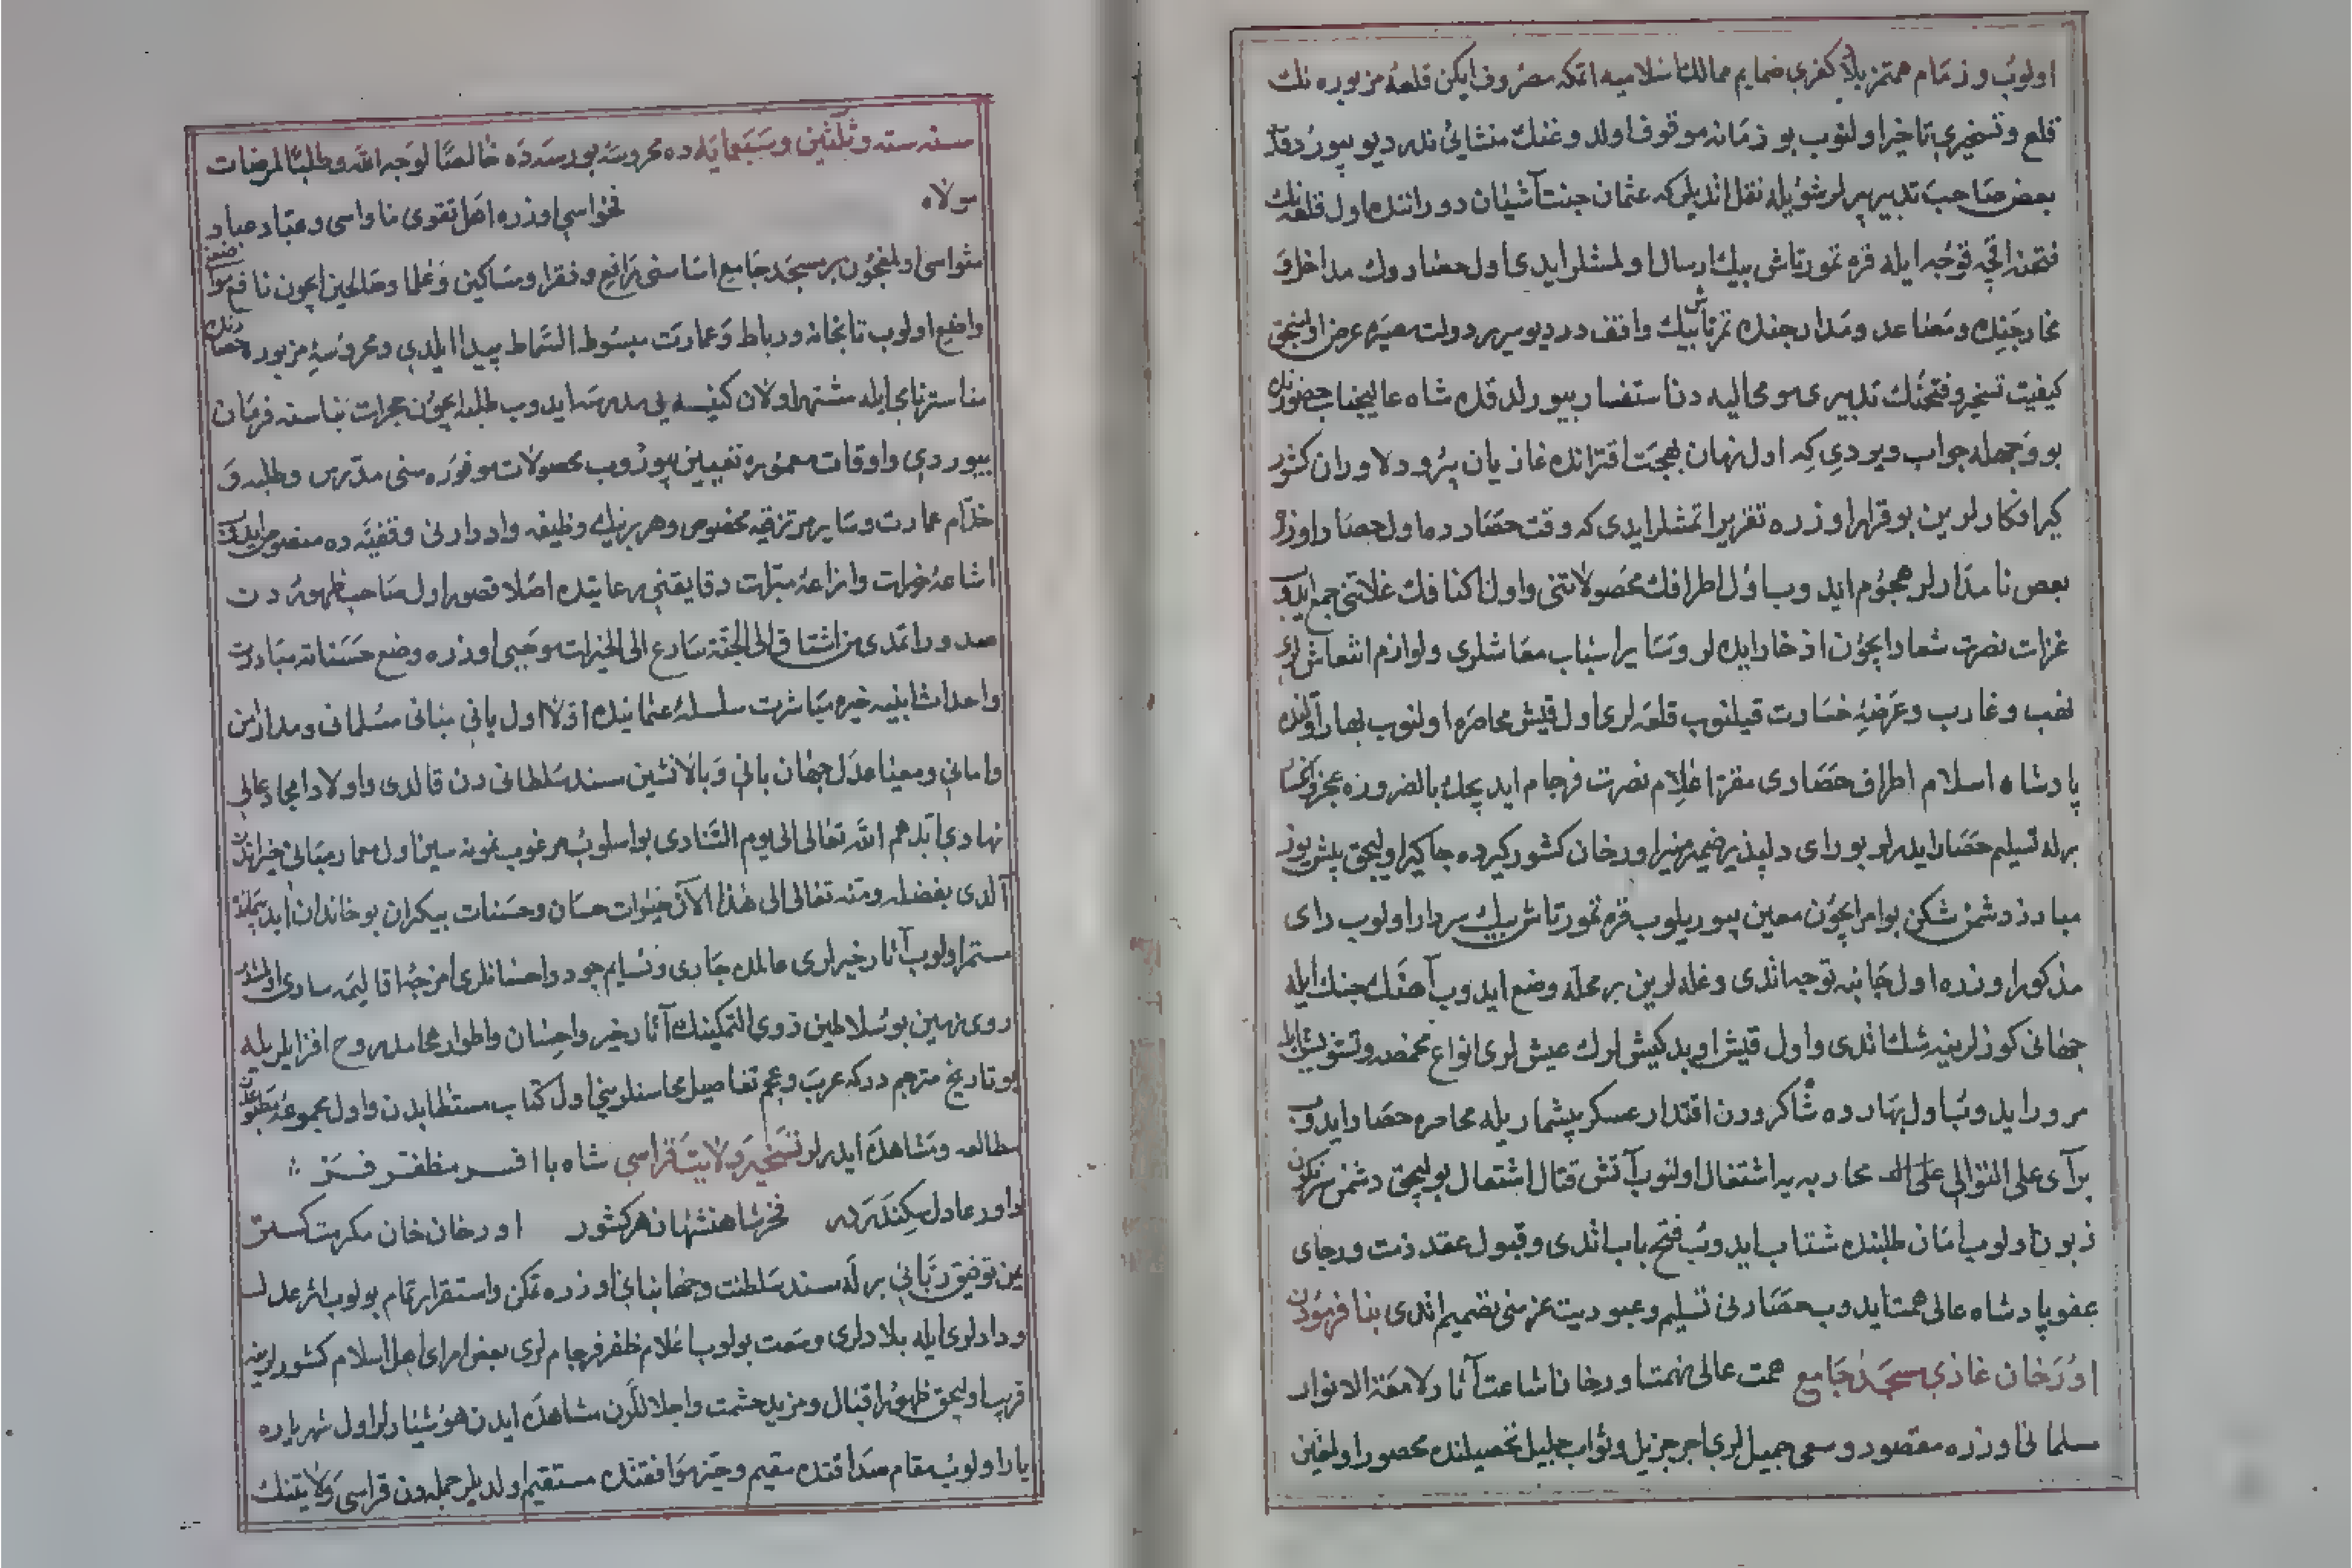 اولوب و زمام همتمز بلاد كفرى ضمايم ممالك اسلاميه اتمكه مصروف ايكن قلعهٔ مزبوره نك
قلع و تسخيرى تاخير اولنوب بو زمانه موقوف اولدوغنك منشائى ندر ديو بيوردقده
بعض صاحب تدبير پيرلر شويله نقل اتديلر كه عثمان جنت آشيان دوراننده اول قلعه نك
فتحنه اقچه قوجه ايله قره تمورتاش بيك ارسال اولمشلر ايدى اول حصارك مداخل و
مخارجنده و مصاعد و مدارجنده تمرتاش بيك واقف در ديو سرير دولت مصيره عرض اولنجق
كيفيت تسخير و فتحنك تدبيرى مومى اليه دن استفسار بيورلدقده شاه عاليجناب حضورنده
بو وجهله جواب ويردى كه اول زمان بهجت اقترانده غازيان پيرو دلاوران كشور
كير افكارلرين بو قرار اوزره تقرير اتمشلر ايدى كه وقت حصادده اول حصار اوزره
بعض نامدارلر هجوم ايدوب اول اطرافك محصولاتنى و اول اكنافك غلاتنى جمع ايدوب
غزات نصرت شعار ايچون اذخار ايده لر و ساير اسباب معاشلرى و لوازم انتعاشلرى
نهب و غارت و عرضهٔ خسارت قيلنوب قلعه لرى اول قيش محاصره اولنوب بهار اولنده
پادشاه اسلام اطراف حصارى مقر اعلام نصرت فرجام ايديجك بالضروره عجز
برله تسليم حصار ايده لر بو راى دلپذير ضمير منير اورخان كشور كيرده جاكير اوليجق بش يوز
مبارز دشمن شكن بو امر ايچون معين بيوريلوب قره تمورتاش بيك سردار اولوب راى
مذكور اوزره اول جانبه توجه اتدى و غله لرين بر محله وضع ايدوب آهنك جنك ايله
جهانى كوزلرينه تنك اتدى و اول قيش اويد كيش لرك عيش لرى انواع مخمصه و تشويش ايله
مرور ايدوب اول بهارده شاه كردون اقتدار عسكر بيشمار يله محاصرهٔ حصار ايدوب
بر آى على التوالى محاربه يه اشتغال اولنوب آتش قتال اشتعال بوليجق دشمن
زبون اولوب امان طلبنده شتاب ايدوب فتح باب اتدى و قبول عقد ذمت و رجاى
عفو پادشاه عالى همت ايدوب حصارنى تسليم و عبوديت عزمنى تصميم اتدى بنا فرمودن
اورخان غازى مسجد جامع همت عالى نهمت اورخان اشاعت آثار لامعة الانوار
سلمانى اوزره مقصور و سعى جميللرى اجر جزيل و ثواب جليل تحصيلنده محصور اولمغين
سنه سته و ثلثين و سبعمايه ده محروسهٔ بورسه ده خالصا لوجه الله و طلبا لمرضات
مولاه فحواسى اوزره اهل تقوى ماواسى و عباد عباد
مثواسى اولمغچون بر مسجد جامع اساسنى رافع و فقرا و مساكين و علما و صالحين ايچون نافع
واضع اولوب تابخانه و رباط و عمارت مبسوط السماط پيدا ايلدى و محروسهٔ مزبوره حصارنده
مناستر نامى ايله مشتهر اولان كنيسه يى مدرسه ايدوب طلبه ايچون حجرات بناسنه فرمان
بيوردى و اوقات معموره تعيين بيوروب محصولات موفوره سنى مدرس و طلبه و
خدام عمارت و ساير مرتزقيه مخصوص و هر برينك وظيفه و ادرارنى وقفيه ده منصوص ايلدى
اشاعهٔ خيرات و اذاعهٔ مبرات دقايقنى رعايتده اصلا قصور اول صاحب ظهوردن
صدور اتمدى من اشتاق الى الجنة سارع الى الخيرات موجبى اوزره وضع حسناته مبادرت
و احداث ابنيه خيره مباشرت سلسلهٔ عثمانيده اولا اول بانى مبانى مسلمانى و مدار امن
و امانى و معمار عدل جهان بانى و بالانشين مسند سلطانى دن قالدى و اولاد امجاد عالى
نهادى ابدهم الله تعالى الى يوم التنادى بو اسلوب مرغوب نمونه سين اول معمار مبانى خيراتدن
آلدى بفضله و منه تعالى الى هذا الآن خيرات حسان و حسنات بيكران بو خاندان
مستمر اولوب آثار خيرلرى عالمده جارى و نسايم جود و احسانلرى هر جهٔ اقاليمه سارى اولمشدر
روى زمين بو سلاطين ذوى التمكينك آثار خير و احسان و اطوار محامد روح افزالريله
بو تاريخ مترجم در كه عرب و عجم تفاصيل محاسنلرينى اول كتاب مستطابدن و اول مجموعهٔ
مطالعه و مشاهده ايدرلر تسخير ولايت قراسى شاه با افسر مظفر فر
داور عادل سكندر در فخر شاهنشهان هر كشور اورخان خان مكرمت كستر
يمن توفيق ربانى برله مسند سلطنت و جهانبانى اوزره تمكن و استقرار تمام بولوب اثر عدل
و دادلرى ايله بلادلرى وسعت بولوب اعلام ظفر فرجام لرى بعض امراى اهل اسلام كشورلرينه
قريب اوليجق ظهور اقبال و مزيد حشمت و اجلاللرن مشاهده ايدن هوشيارلر اول شهرياره
يار اولوب مقام صداقتده مقيم و حيز موافقتده مستقيم اولديلر جمله دن قراسى ولايتنك